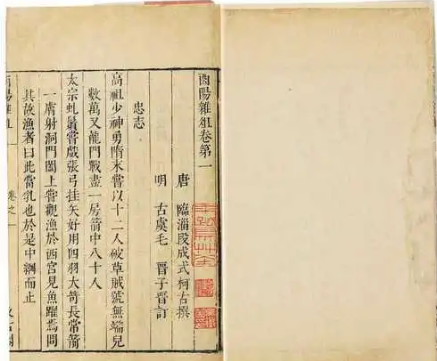 酉陽雜俎卷第一
唐 臨淄段成式柯古撰
明 古虞毛 晉子晉訂
忠志
高祖少神勇隋末嘗以十二人破草賊號無端兒
數萬又龍門戰盡一房箭中八十人
太宗虬鬚嘗戲張弓挂矢好用四羽大笴長常箭
一膚射洞門闔上嘗觀漁於西宮見魚躍焉問
其故漁者曰此當乳也於是中網而止
酉陽雜俎 卷之